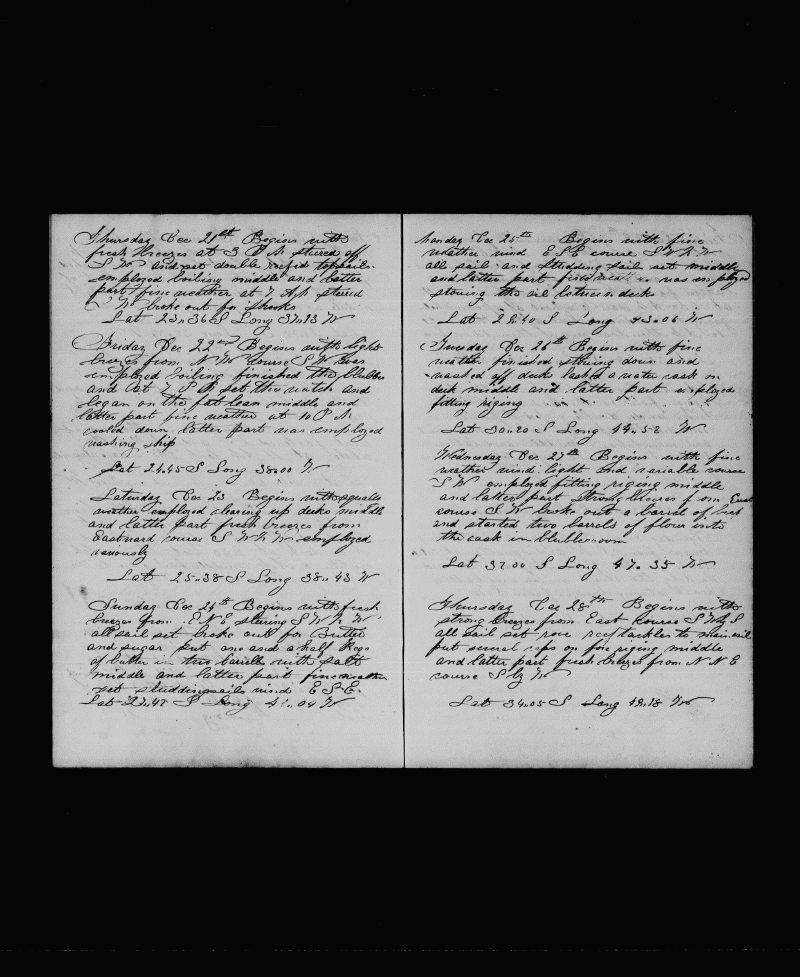 Thursday Dec 21st Begins with
fresh breezes at 3 P M steered off
S W and set double reefed topsails
employed boiling middle and latter
part fine weather at 7 A M steered
W broke out for shooks
Lat 23..36 S Long 37..13 W
Friday Dec 22nd Begins with light
breezes from N W course S W
employed boiling finished the blubber
and at 7 P M set the watch and
began on the fat lean middle and
latter part fine weather at 10 P M
cooled down latter part was employed
washing ship
Lat 24.45 S Long 38.00 W
Saturday Dec 23 Begins with squally
weather employed clearing up decks middle
and latter part fresh breezes from
Eastward course S W by W employed
variously
Lat 25..38 S Long 38..43 W
Sunday Dec 24th Begins with fresh
breezes from E N E steering S W by W
all sail set broke out for Butter
and sugar put one and a half Kegs
of butter in two barrels with salt
middle and latter part fine weather
set studdingsails wind E S E
Lat 27..47 S Long 41..04 W
Monday Dec 25th Begins with fine
weather wind E S E course S W by W
all sail and studding sail set middle
and latter part was employed
stowing the oil between decks
Lat 29..40 S Long 43..06 W
Tuesday Dec 26th Begins with fine
weather finished stowing down and
washed off decks lashed a water cask on
deck middle and latter part employed
fitting riging
Lat 30..20 S Long 44..52 W
Wednesday Dec 27th Begins with fine
weather wind light and variable course
S W employed fitting riging middle
and latter part strong breezes from East
course S W broke out a barrel of beef
and started two barrels of flour into
the cask in blubberroom
Lat 32.00 S Long 47..35 W
Thursday Dec 28th Begins with
strong breezes from East course S W by S
all sail set rove reeftackles to main sail
put several rips on fore riging middle
and latter part fresh breezes from N N E
course S by W
Lat 34.05 S Long 49.18 W